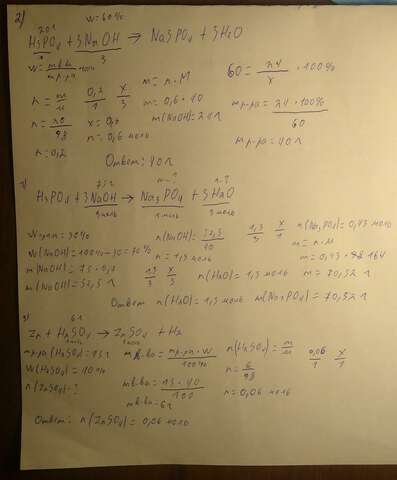 2) w=60%
20г
H3PO4 + 3NaOH → Na3PO4 + 3H2O
w = mв.ва / mр.ра · 100%
n = m/M 0,2/1 x/3 m = n · M 60 = 24/x · 100%
m = 0,6 · 40
n = 20/98 x = 0,6 m(NaOH) = 24г mр-ра = 24 · 100% / 60
n = 0,6 моль
n = 0,2 mр-ра = 40г
Ответ: 40г
75г m-? n-?
H3PO4 + 3NaOH → Na3PO4 + 3H2O
3моль 1моль 3моль
Wприм = 30% n(NaOH) = 52,5/40 1,3/3 x/1 n(Na3PO4) = 0,43 моль
W(NaOH) = 100% - 30 = 70% n = 1,3 моль m = n · M
m(NaOH) = 75 · 0,7 1,3/3 x/3 n(H2O) = 1,3 моль m = 0,43 · 164
m(NaOH) = 52,5г m = 70,52г
Ответ n(H2O) = 1,3 моль m(Na3PO4) = 70,52г
3) 6г
Zn + H2SO4 → ZnSO4 + H2
1моль 1моль
mр-ра(H2SO4) = 15г mв.ва = mр-ра · W / 100% n(H2SO4) = m/M 0,06/1 x/1
W(H2SO4) = 40% n = 6/98
n(ZnSO4) - ? mв.ва = 15 · 40 / 100 n = 0,06 моль
mв.ва = 6г
Ответ: n(ZnSO4) = 0,06 моль